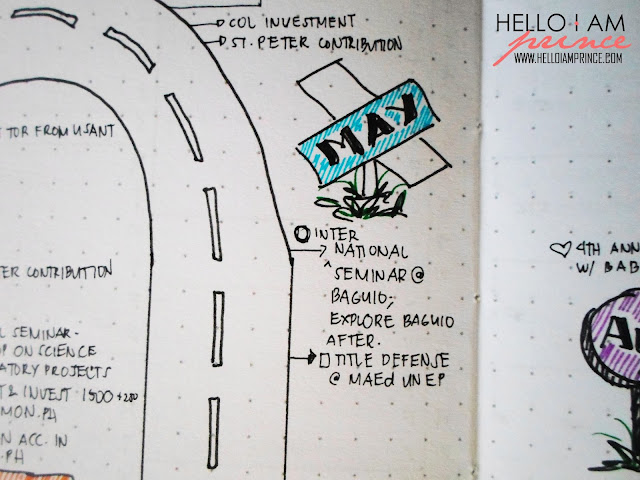 HELLO I AM
prince
WWW.HELLOIAMPRINCE.COM
COL INVESTMENT
ST. PETER CONTRIBUTION
TOR FROM USANT
MAY
INTER
NATIONAL
^ SEMINAR @
BAGUIO;
EXPLORE BAGUIO
AFTER.
TITLE DEFENSE
@ MAEd UNEP
CONTRIBUTION
SEMINAR-
ON SCIENCE
PROJECTS
& INVEST 1500 + 280
MON.PH
ACC. IN
.PH
♡ 4TH ANN
W/ BAB